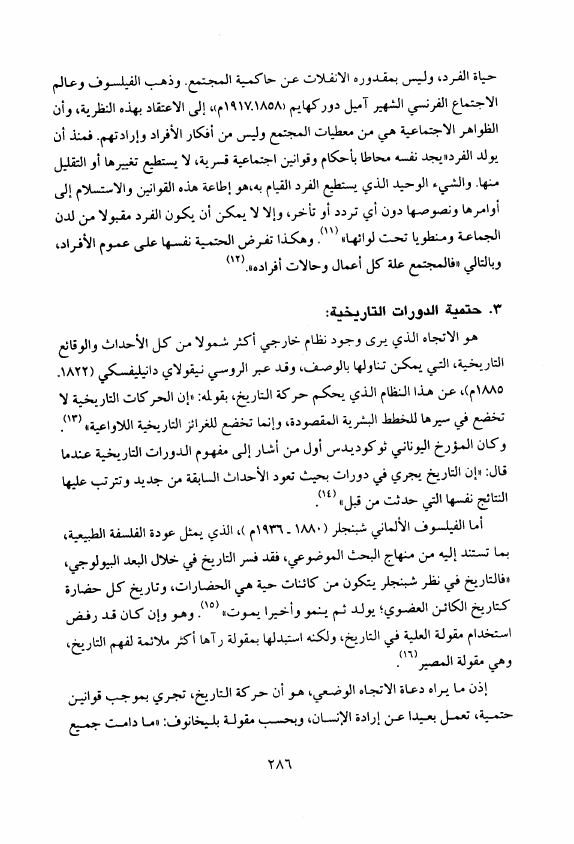 حياة الفرد، وليس بمقدوره الانفلات عن حاكمية المجتمع. وذهب الفيلسوف وعالم
الاجتماع الفرنسي الشهير آميل دوركهايم (١٨٥٨ـ١٩١٧م)، إلى الاعتقاد بهذه النظرية، وأن
الظواهر الاجتماعية هي من معطيات المجتمع وليس من أفكار الأفراد وإرادتهم. فمنذ أن
يولد الفرد «يجد نفسه محاطا بأحكام وقوانين اجتماعية قسرية، لا يستطيع تغييرها أو التقليل
منها. والشيء الوحيد الذي يستطيع الفرد القيام به،هو إطاعة هذه القوانين والاستسلام إلى
أوامرها ونصوصها دون أي تردد أو تأخر، وإلا لا يمكن أن يكون الفرد مقبولا من لدن
الجماعة ومنطويا تحت لوائها» (١١). وهكذا تفرض الحتمية نفسها على عموم الأفراد،
وبالتالي «فالمجتمع علة كل أعمال وحالات أفراده».(١٢)
٣. حتمية الدورات التاريخية:
هو الاتجاه الذي يرى وجود نظام خارجي أكثر شمولا من كل الأحداث والوقائع
التاريخية، التي يمكن تناولها بالوصف، وقد عبر الروسي نيقولاي دانيليفسكي (١٨٢٢ـ
١٨٨٥م)، عن هذا النظام الذي يحكم حركة التاريخ، بقوله: «إن الحركات التاريخية لا
تخضع في سيرها للخطط البشرية المقصودة، وإنما تخضع للغرائز التاريخية اللاواعية» (١٣).
وكان المؤرخ اليوناني ثوكوديدس أول من أشار إلى مفهوم الدورات التاريخية عندما
قال: «إن التاريخ يجري في دورات بحيث تعود الأحداث السابقة من جديد وتترتب عليها
النتائج نفسها التي حدثت من قبل» (١٤).
أما الفيلسوف الألماني شبنجلر (١٨٨٠ ـ ١٩٣٦م )، الذي يمثل عودة الفلسفة الطبيعية،
بما تستند إليه من منهاج البحث الموضوعي، فقد فسر التاريخ في خلال البعد البيولوجي،
«فالتاريخ في نظر شبنجلر يتكون من كائنات حية هي الحضارات، وتاريخ كل حضارة
كتاريخ الكائن العضوي؛ يولد ثم ينمو وأخيرا يموت» (١٥). وهو وإن كان قد رفض
استخدام مقولة العلية في التاريخ، ولكنه استبدلها بمقولة رآها أكثر ملائمة لفهم التاريخ،
وهي مقولة المصير (١٦).
إذن ما يراه دعاة الاتجاه الوضعي، هو أن حركة التاريخ، تجري بموجب قوانين
حتمية، تعمل بعيدا عن إرادة الإنسان، وبحسب مقولة بليخانوف: «ما دامت جميع
٢٨٦